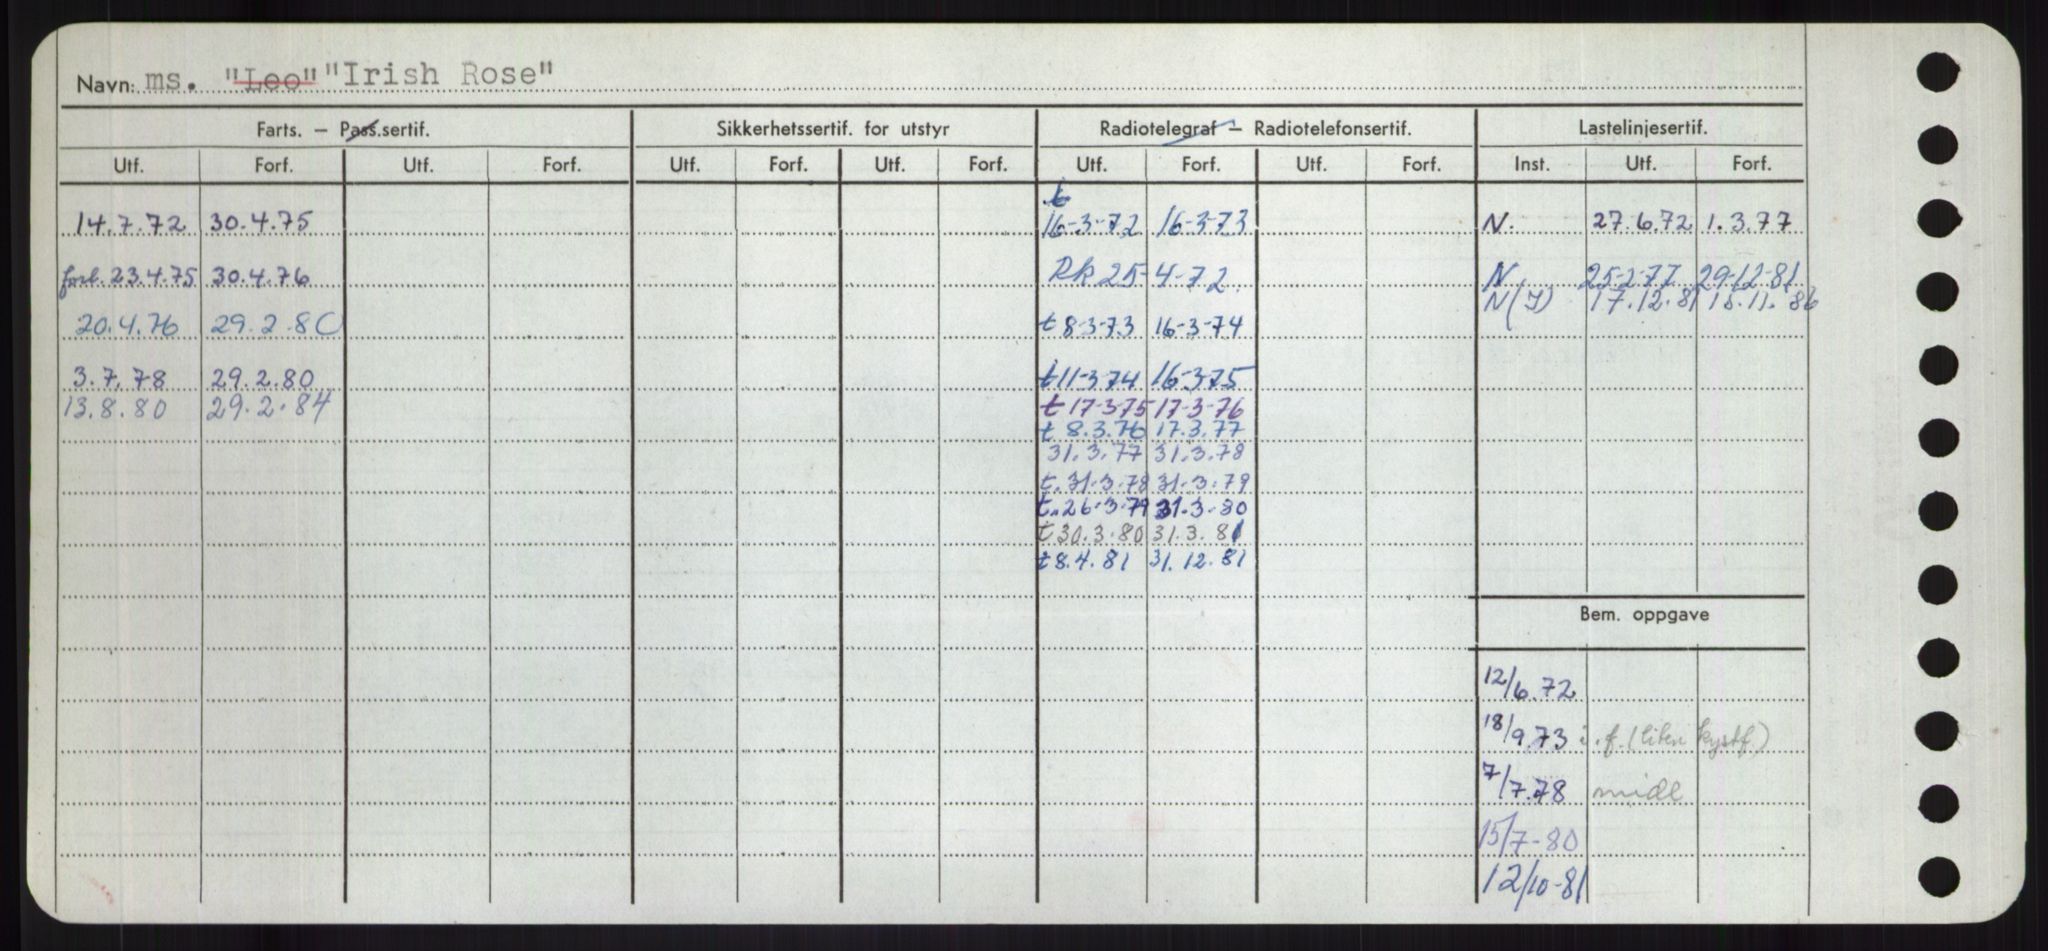 Navn: ms. "Leo" "Irish Rose"
Farts. — Pass.sertif. Sikkerhetssertif. for utstyr Radiotelegraf — Radiotelefonsertif. Lastelinjesertif.
Utf. Forf. Utf. Forf. Utf. Forf. Utf. Forf. Utf. Forf. Utf. Forf. Inst. Utf. Forf.
t
14.7.72 30.4.75 16-3-72 16-3-73 N. 27.6.72 1.3.77
forl. 23.4.75 30.4.76 Rk 25-4-72. N 25-2-77 29-12-81
N(I) 17.12.81 15.11.86
20.4.76 29.2.80 t 8-3-73 16-3-74
3.7.78 29.2.80 t 11-3-74 16-3-75
13.8.80 29.2.84 t 17-3-75 17-3-76
t 8.3.76 17.3.77
31.3.77 31.3.78
t. 31-3-78 31-3-79
t. 26-3-79 31-3-80
t 30.3.80 31.3.81
t 8.4.81 31.12.81
Bem. oppgave
12/6.72
18/9.73 i.f. (liten kystf.)
7/7.78 midl
15/7-80
12/10-81